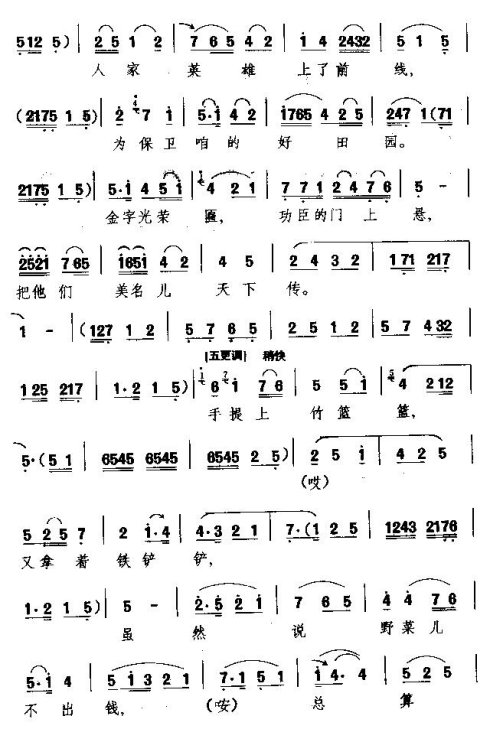 5125) | 25 12 | 7 65 42 | i4 2432 | 51 5 |
人 家 英 雄 上了前 线,
(2175 15) | 2 71 | 5·1 42 | 1765 4 25 | 247 1(71
为保卫 咱的 好 田 园。
2175 15) | 5·1 4 51 | 4 21 | 771 2476 | 5 - |
金字光荣 匾, 功臣的门上 悬,
2521 765 | 1651 42 | 4 5 | 2432 | 171 217 |
把他们 美名儿 天下 传。
1 - | (127 12 | 5765 | 2512 | 57 432 |
[五更调] 稍快
125 217 | 1·215) | 6 i 76 | 5 5i | 4 212 |
手提上 竹篮 篮,
5·(51 | 6545 6545 | 6545 25) | 2 51 | 425 |
(哎)
5257 | 2 1·4 | 4·321 | 7·(125 | 1243 2176 |
又拿着 铁铲 铲,
1·215) | 5 - | 2·5 21 | 7 65 | 44 76 |
虽 然 说 野菜儿
5·1 4 | 51321 | 7·151 | i4·4 | 525 |
不出 钱, (哎) 总 算